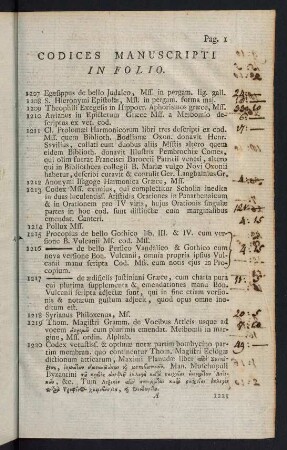 Pag. 1
CODICES MANUSCRIPTI
IN FOLIO.
1207 Egesippus de bello Judaico, Mss. in pergam. fig. gall.
1208 S. Hieronymi Epistolæ, Mss. in pergam. forma min.
1209 Theophili Exegesis in Hippocr. Aphorismos græce, Mss.
1210 Arrianus in Epictetum Græce Mss. a Meibomio
descriptus ex vet. cod.
1211 Cl. Ptolomæi Harmonicorum libri tres descripti ex cod.
Mss. quem Biblioth. Bodlejanæ Oxon. donavit Henr.
Savilius, collati cum duobus aliis Msstis altero quem
eidem Biblioth. donavit Illustris Pembrochiæ Comes,
qui olim fuerat Francisci Barocii Patricii veneti, altero
qui in Bibliotheca collegii B. Mariæ vulgo Novi Oxonii
habetur, describi curavit & contulit Ger. Langbainius Gr.
1212 Anonymi Isagoge Harmonica Græce, Mss.
1213 Codex Mss. eximius, qui complectitur Scholia inedita
in duos luculentiss. Aristidis Orationes in Panathenaicum
& in Orationem pro IV viris, hujus Orationis singulæ
partes in hoc cod. sunt distinctæ cum marginalibus
emendat. Canteri.
1214 Pollux Mss.
1215 Procopius de bello Gothico lib. III. & IV. cum versione
B. Vulcanii Mss. cod. Mss.
1216 —— de bello Persico Vandilico & Gothico cum
nova versione Bon. Vulcanii, omnia propriis ipsius Vulcanii
manu scripta Cod. Mss. cum notis ejus in Procopium.
1217 —— de ædificiis Justiniani Græce, cum charta pura
cui plurima supplementa & emendationes manu Bon.
Vulcanii scripta adjectæ sunt, qui in fine etiam versionis
& notarum quidum adjecit, quod opus omne inedium
est.
1218 Syrianus Philoxenus, Mss.
1219 Thom. Magistri Gramm. de Vocibus Atticis usque ad
vocem cum plurimis emendat. Methonii in margine,
Mss. ordin. Alphab.
1220 Codex vetustiss. & optimæ notæ partim bombycino partim
membran. quo continentur Thom. Magistri Eclogæ
dictionum atticarum, Maximi Planudæ liber
Man. Moschopuli
Byzantini
&c. Tum
A
1221